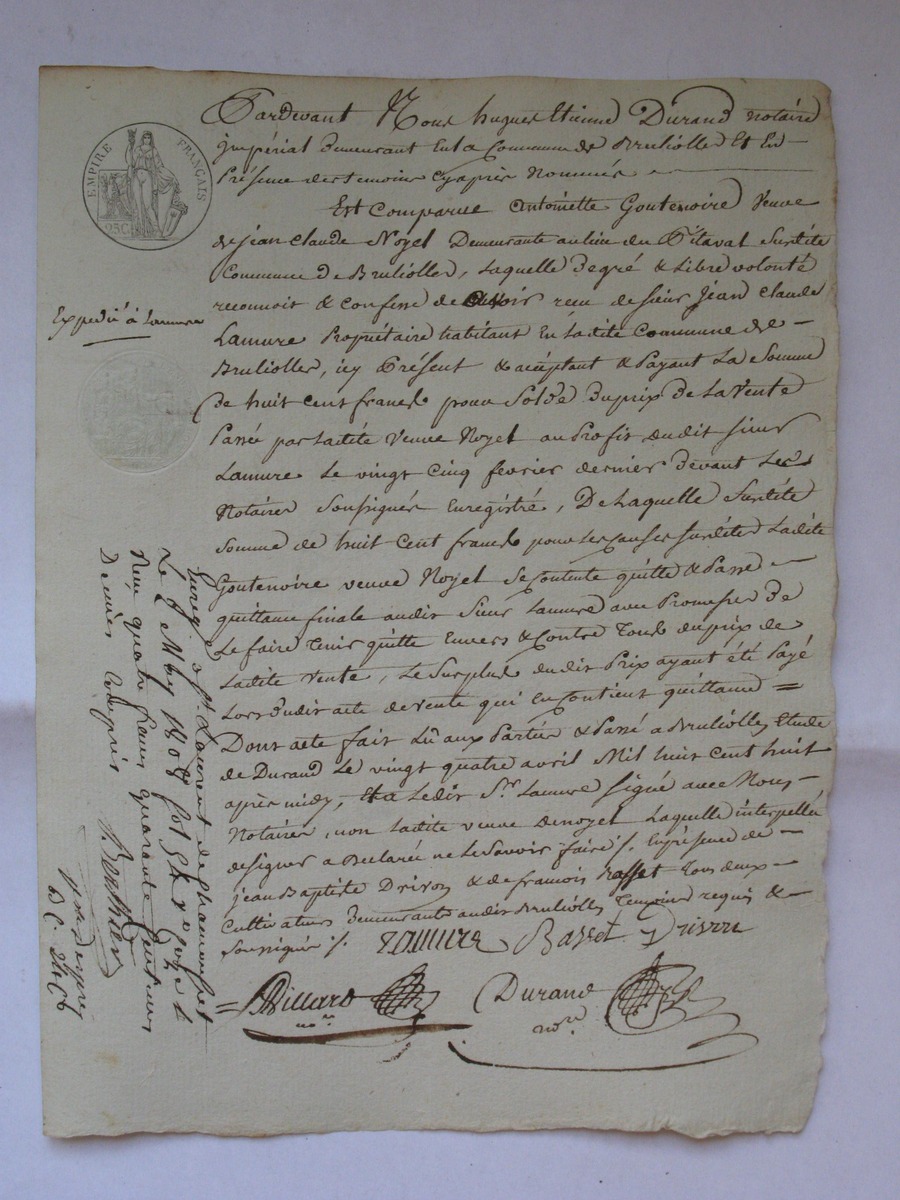 EMPIRE FRANÇAIS
25C.
Pardevant Nous hugues Etienne Durand notaire
jmpérial demeurant En La Commune de Brulioller Et En
Présence des temoins cyaprès Nommés
Est Comparue Antoinette Goutenoire Veuve
de jean Claude Noyel Demeurante au lieu du Pitaval Susdite
Commune de Brulioller, Laquelle degré & Libre volonté
reconnoit & confesse de avoir recu de sieur Jean Claude
Lamure Propriétaire habitant En Ladite Commune de
Brulioller, icy Présent & acceptant & Payant La Somme
De huit cent francs pour Solde du prix de La Vente
Passée par Ladite Veuve Noyel au Profit dudit sieur
Lamure Le vingt cinq fevrier dernier devant Les
Notaires Soussignés Enregistré, De Laquelle Susdite
Somme de huit Cent francs pour les causes susdites Ladite
Goutenoire veuve Noyel se Contente quitte & Passe
quittance finale audit Sieur Lamure avec Promesse de
Le faire tenir quitte Envers & Contre Tous du prix de
Ladite Vente, Le Surplus dudit Prix ayant été Payé
Lors dudit acte de Vente qui En Contient quittance =
Dont acte fait Lu aux Parties & Passé a Brulioller Etude
de Durand Le vingt quatre avril Mil huit cent huit
après midy, Et a Ledit Sr. Lamure signé avec Nous
Notaires, non Ladite veuve Noyel Laquelle interpellée
de signer a Declarée ne Le Savoir faire /. En présence de
jean Baptiste Drivon & de francois Basset Tous deux
Cultivateurs Demeurants audit Brulioller Temoins requis &
Soussignés /. Lamure Basset Drivon
Villard Durand
nore. nore.
Expedié à Lamure
Enreg. a St. Laurent de Chamousset
Le 2 May 1808 fol 54 Ro
Reçu quatre francs quarante Centimes
Dixième Compris